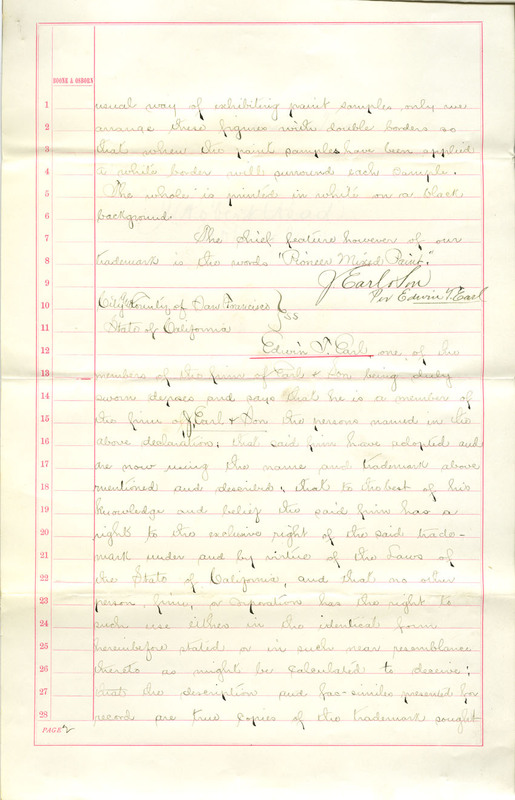 BOONE & OSBORN
1 usual way of exhibiting paint samples, only we
2 arrange these figures with double borders so
3 that when the paint samples have been applied
4 a white border will surround each sample.
5 The whole is printed in white on a black
6 background.
7 The chief feature however of our
8 trademark is the words "Pioneer Mixed Paint."
9 J Earl & Son
Per Edwin T. Earl
10 City & County of San Francisco } ss
11 State of California
12 Edwin T. Earl, one of the
13 members of the firm of Earl & Son being duly
14 sworn deposes and says that he is a member of
15 the firm of J. Earl & Son the persons named in the
16 above declaration; that said firm have adopted and
17 are now using the name and trademark above
18 mentioned and described; that to the best of his
19 knowledge and belief the said firm has a
20 right to the exclusive right of the said trade-
21 mark under and by virtue of the Laws of
22 the State of California, and that no other
23 person, firm, or corporation has the right to
24 such use either in the identical form
25 hereinbefore stated or in such near resemblance
26 thereto as might be calculated to deceive;
27 that the description and fac-similes presented for
28 record are true copies of the trademark sought
PAGE 2